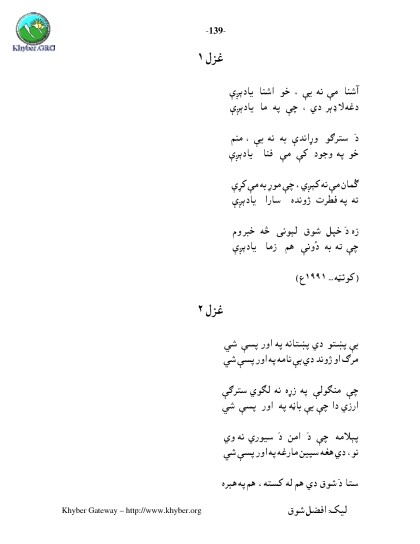 -139-
Khyber.ORG
غزل ۱
آشنا مې نه يې ، خو اشنا يادېږې
دغه لا ډېر دي ، چې په ما يادېږې
دَ سترګو وړاندې به نه يې ، منم
خو په وجود کې مې فنا يادېږې
ګمان مې نه کېږي ، چې مور به مې کړې
ته په فطرت ژونده سارا يادېږې
زه دَ خپل شوق لېونی څه خبروم
چې ته به دُونې هم زما يادېږې
(کوئټه... ۱۹۹۱ع)
غزل ۲
بې پښتو دي پښتانه په اور پسې شي
مرګ او ژوند دي بې نامه په اور پسې شي
چې منګولې په زړه نه لګوي سترګې
ارزي دا چې بې باڼه په اور پسې شي
پېلامه چې دَ امن دَ سيوري نه وي
نو ، دي هغه سپين مارغه په اور پسې شي
ستا دَ شوق دي هم له کسته ، هم په هېره
Khyber Gateway – http://www.khyber.org
ليک: افضل شوق